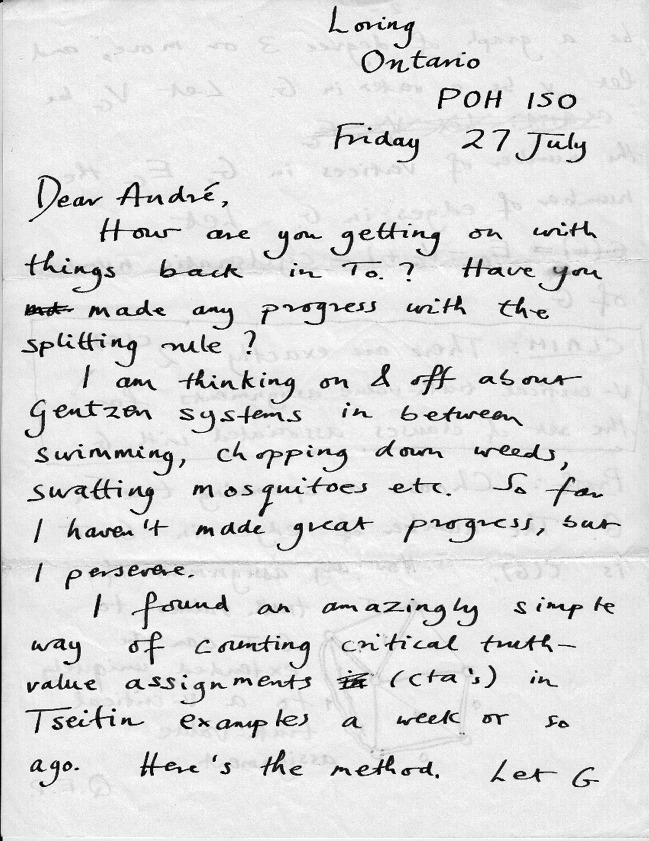 Loring
Ontario
POH 1SO
Friday 27 July
Dear André,
How are you getting on with
things back in To.? Have you
made any progress with the
splitting rule?
I am thinking on & off about
Gentzen systems in between
swimming, chopping down weeds,
swatting mosquitoes etc. So far
I haven't made great progress, but
I persevere.
I found an amazingly simple
way of counting critical truth-
value assignments (cta's) in
Tseitin examples a week or so
ago. Here's the method. Let G